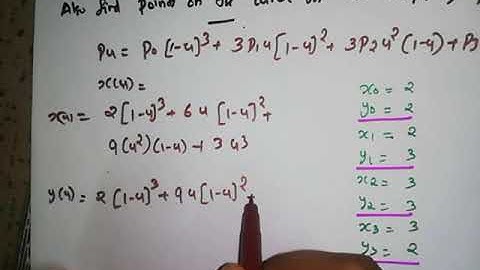 Also find points on
Pu = P0 [1-u]³ + 3P1u [1-u]² + 3P2u² (1-u) + P3
x(u) =
x(u) = 2 [1-u]³ + 6u [1-u]² +
9(u²)(1-u) + 3u3
y(u) = 2 [1-u]³ + 9u [1-u]² +
x0 = 2
y0 = 2
x1 = 2
y1 = 3
x2 = 3
y2 = 3
x3 = 3
y3 = 2